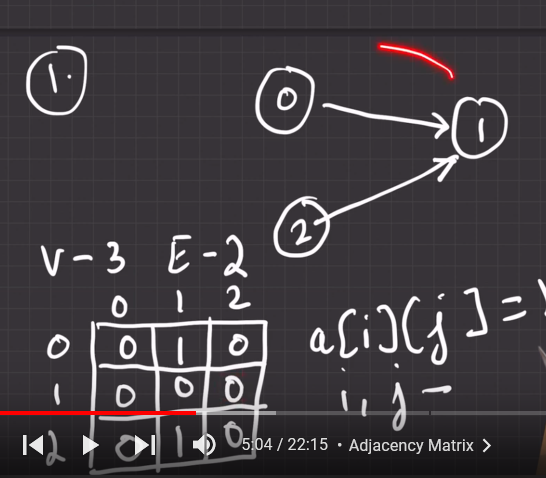 1.
0
1
2
V - 3 E - 2
0 1 2
0 0 1 0
a[i][j] =
1 0 0 0
i, j -
2 0 1 0
5:04 / 22:15 • Adjacency Matrix